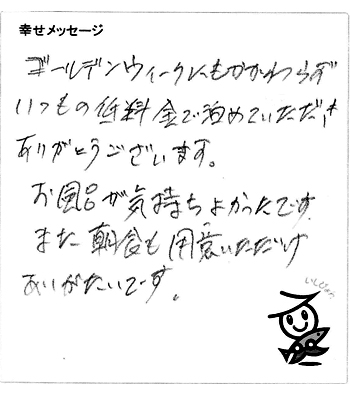 幸せメッセージ
ゴールデンウィークにもかかわらず
いつもの低料金で泊めていただき
ありがとうございます。
お風呂が気持ちよかったです
また朝食も用意いただけ
ありがたいです。